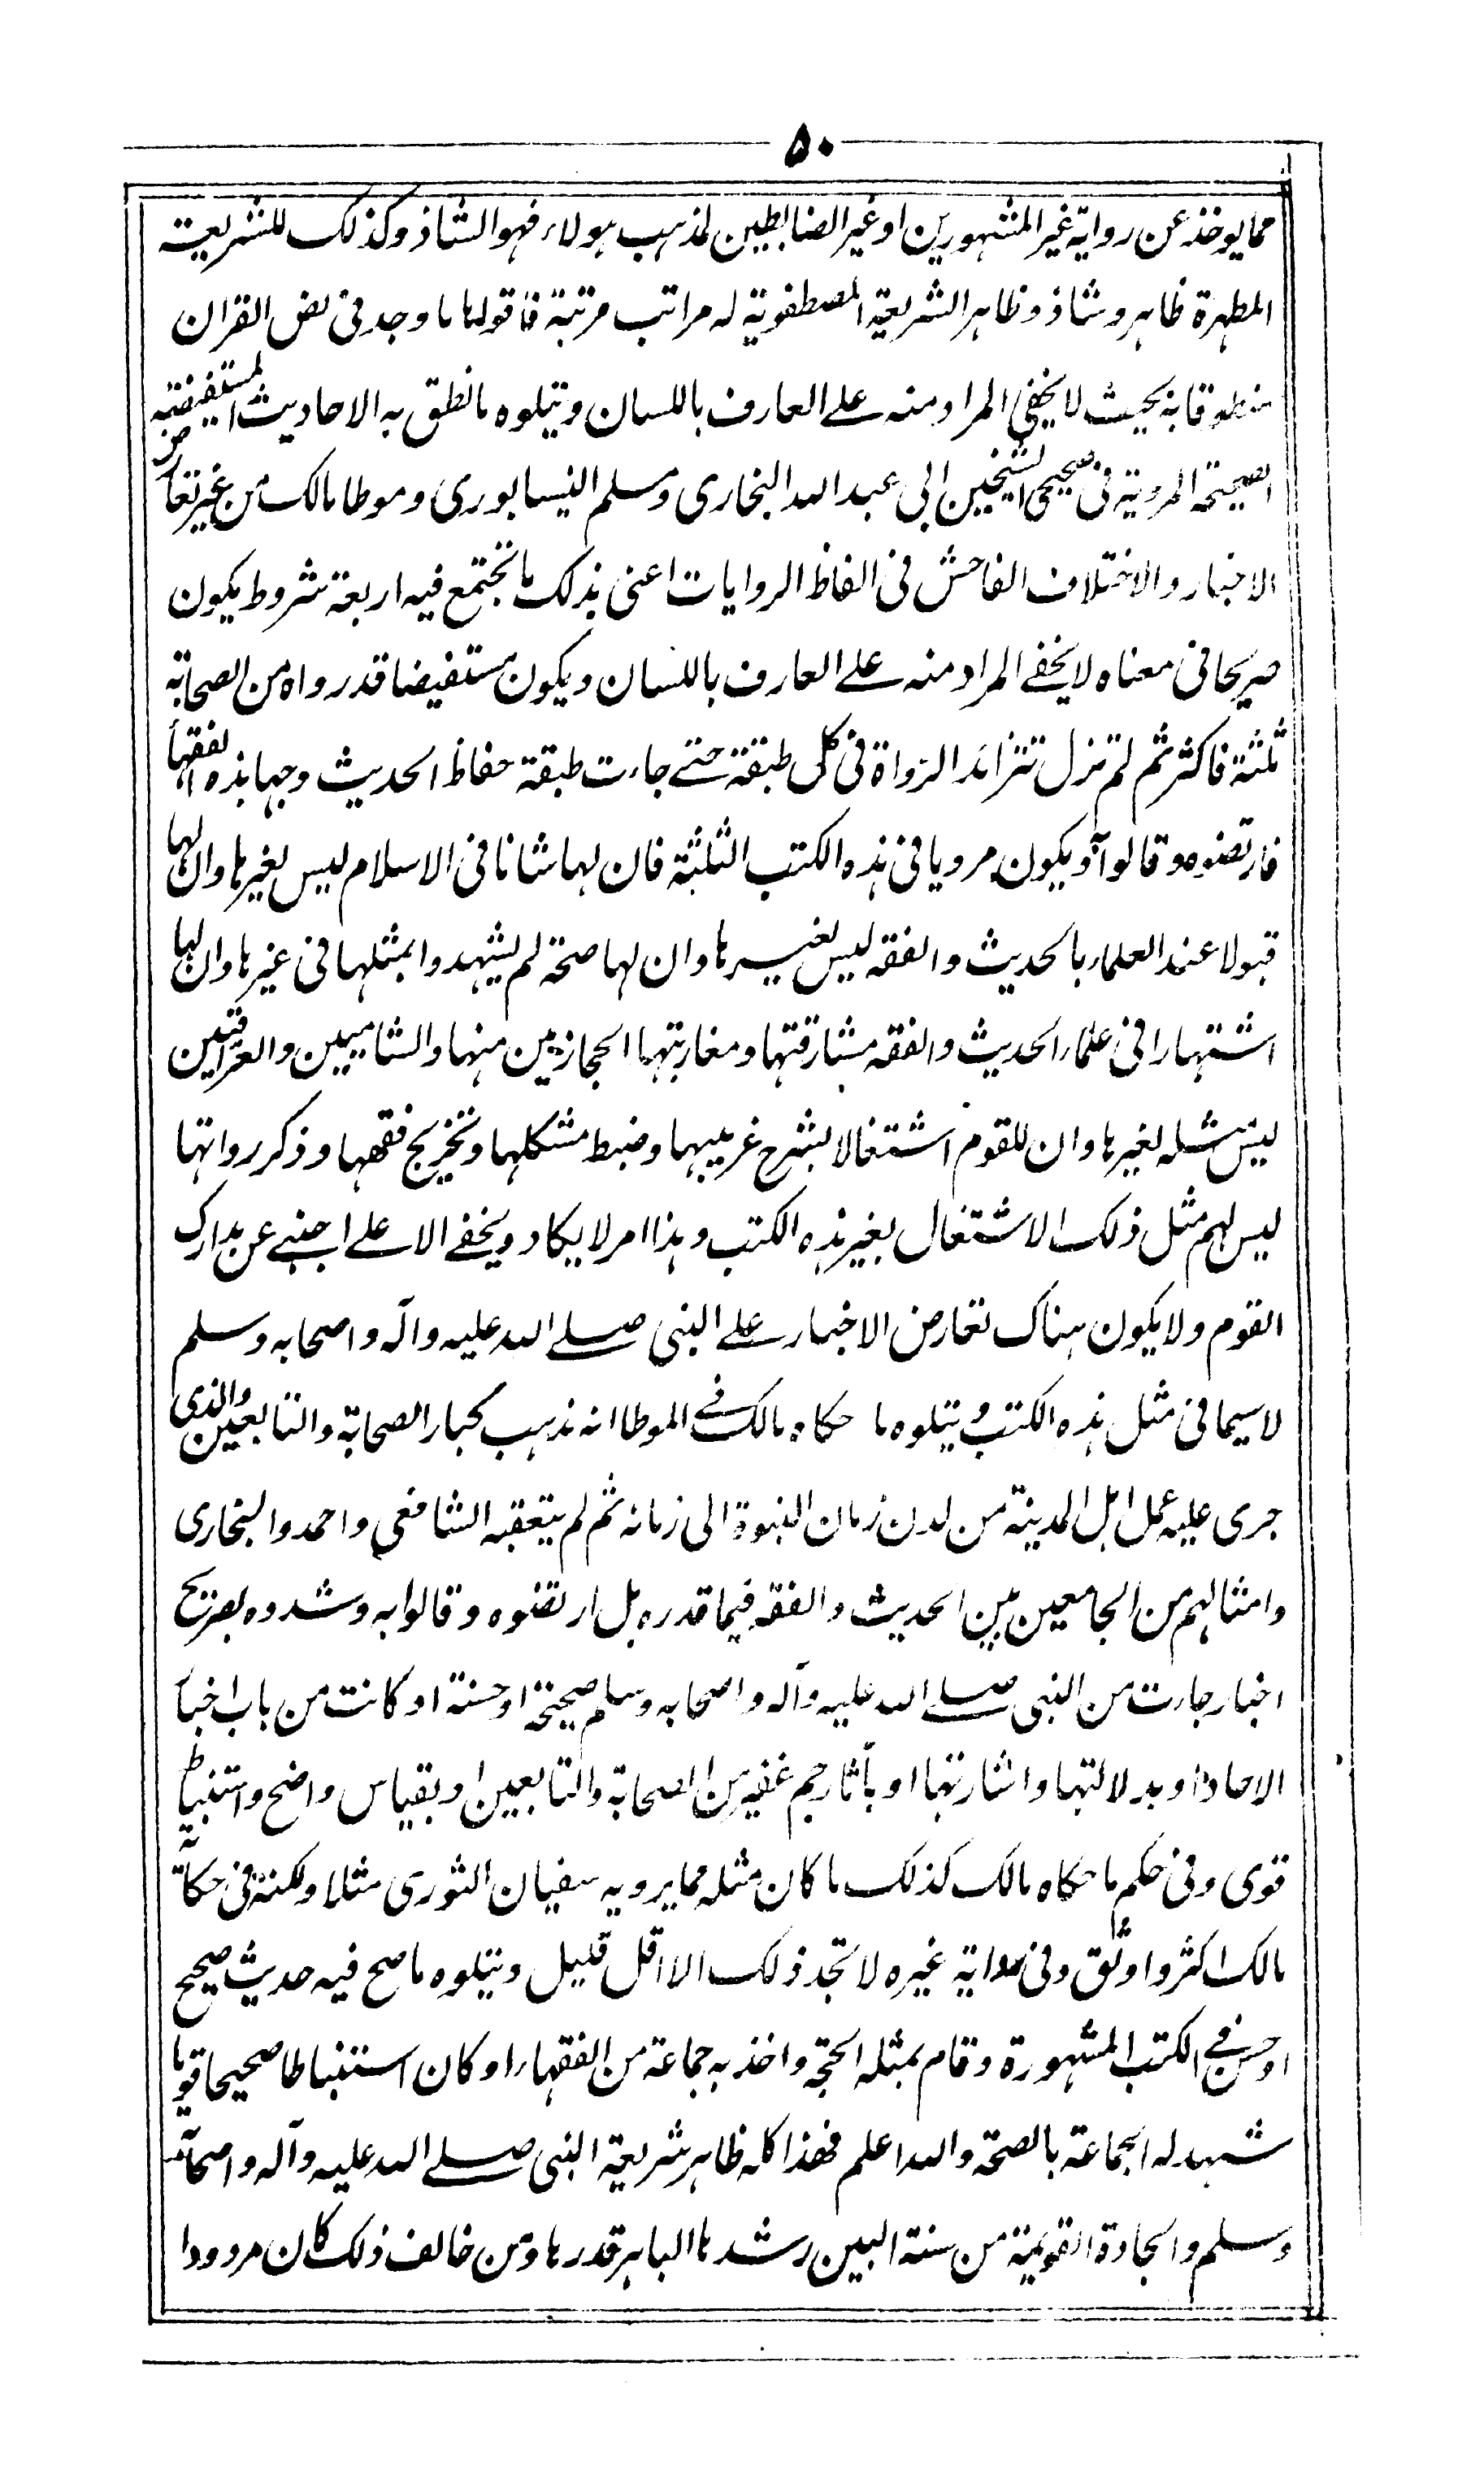 ۵۰
مما يوخذ عن رواية غير المشهورين او غير الضابطين لمذهب هولاء فهو الشاذ وكذلك للشريعة
المطهرة ظاهر وشاذ وظاهر الشريعة المصطفوية له مراتب مرتبة فاقولها ما وجد فى نص القران
منطوقا به بحيث لا يخفى المراد منه على العارف باللسان ويتلوه ما نطق به الاحاديث المستفيضة
الصحيحة المروية فى صحيحى الشيخين ابى عبد الله البخارى ومسلم النيسابورى وموطا مالك من غير تعارض
الاخبار والاختلاف الفاحش فى الفاظ الروايات اعنى بذلك ما تجتمع فيه اربعة شروط يكون
صريحا فى معناه لا يخفے المراد منه علے العارف باللسان ويكون مستفيضا قد رواه من الصحابة
ثلثة فاكثر ثم لم تزل تتزائد الرواة فى كل طبقة حتے جاءت طبقة حفاظ الحديث وجهابذه الفقهاء
فارتضوه وقالوا به ويكون مرويا فى هذه الكتب الثلثة فان لها شانا فى الاسلام ليس لغيرها وان لها
قبولا عند العلماء بالحديث والفقه ليس لغيرها وان لها صحة لم يشهدوا بمثلها فى غيرها وان لها
اشتهارا فى علماء الحديث والفقه مشارقتها ومغاربتها الحجازيين منها والشاميين والعراقيين
ليس مثله لغيرها وان للقوم اشتغالا بشرح غريبها وضبط مشكلها وتخريج فقهها وذكر رواتها
ليس لهم مثل ذلك الاشتغال بغير هذه الكتب وهذا امر لا يكاد ويخفے الا علے اجنبے عن مدارك
القوم ولا يكون هناك تعارض الاخبار علے النبى صلے الله عليه وآله واصحابه وسلم
لا سيما فى مثل هذه الكتب ويتلوه ما حكاه مالك فے الموطا انه مذهب كبار الصحابة والتابعين والذى
جرى عليه عمل اهل المدينة من لدن زمان النبوة الى زمانه ثم لم يتعقبه الشافعى واحمد والبخارى
وامثالهم من الجامعين بين الحديث والفقه فيما قدره بل ارتضوه وقالوا به وشدوه بصريح
اخبار جاءت من النبى صلے الله عليه وآله واصحابه وسلم صحيحة او حسنة او كانت من باب اخبار
الاحاد او بدلالتها واشارتها او بآثار جم غفير من الصحابة والتابعين او بقياس واضح واستنباط
قوى وفى حكم ما حكاه مالك كذلك ما كان مثله مما يرويه سفيان الثورى مثلا ولكنه فى حكاية
مالك اكثر واوثق وفى رواية غيره لا تجد ذلك الا اقل قليل ويتلوه ما صح فيه حديث صحيح
او حسن فے الكتب المشهورة وقام بمثله الحجة واخذ به جماعة من الفقهاء او كان استنباطا صحيحا قويا
شهد له الجماعة بالصحة والله اعلم فهذا كله ظاهر شريعة النبى صلے الله عليه وآله واصحابه
وسلم والجادة القويمة من سنة البين رشدها الباهر قدرها ومن خالف ذلك كان مردودا